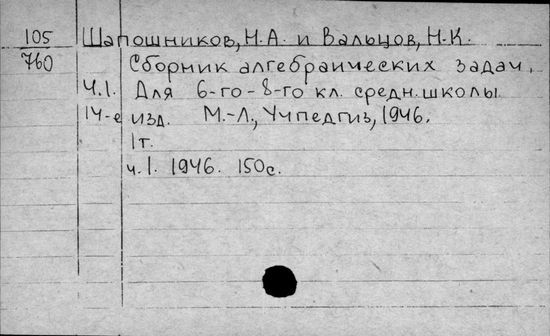 105 Шапошников, Н.А. и Вальцов, Н.К.
760 Сборник алгебраических задач.
Ч.1. Для 6-го-8-го кл. средн. школы
14-е изд. М.-Л., Учпедгиз, 1946.
1т.
ч.1. 1946. 150с.